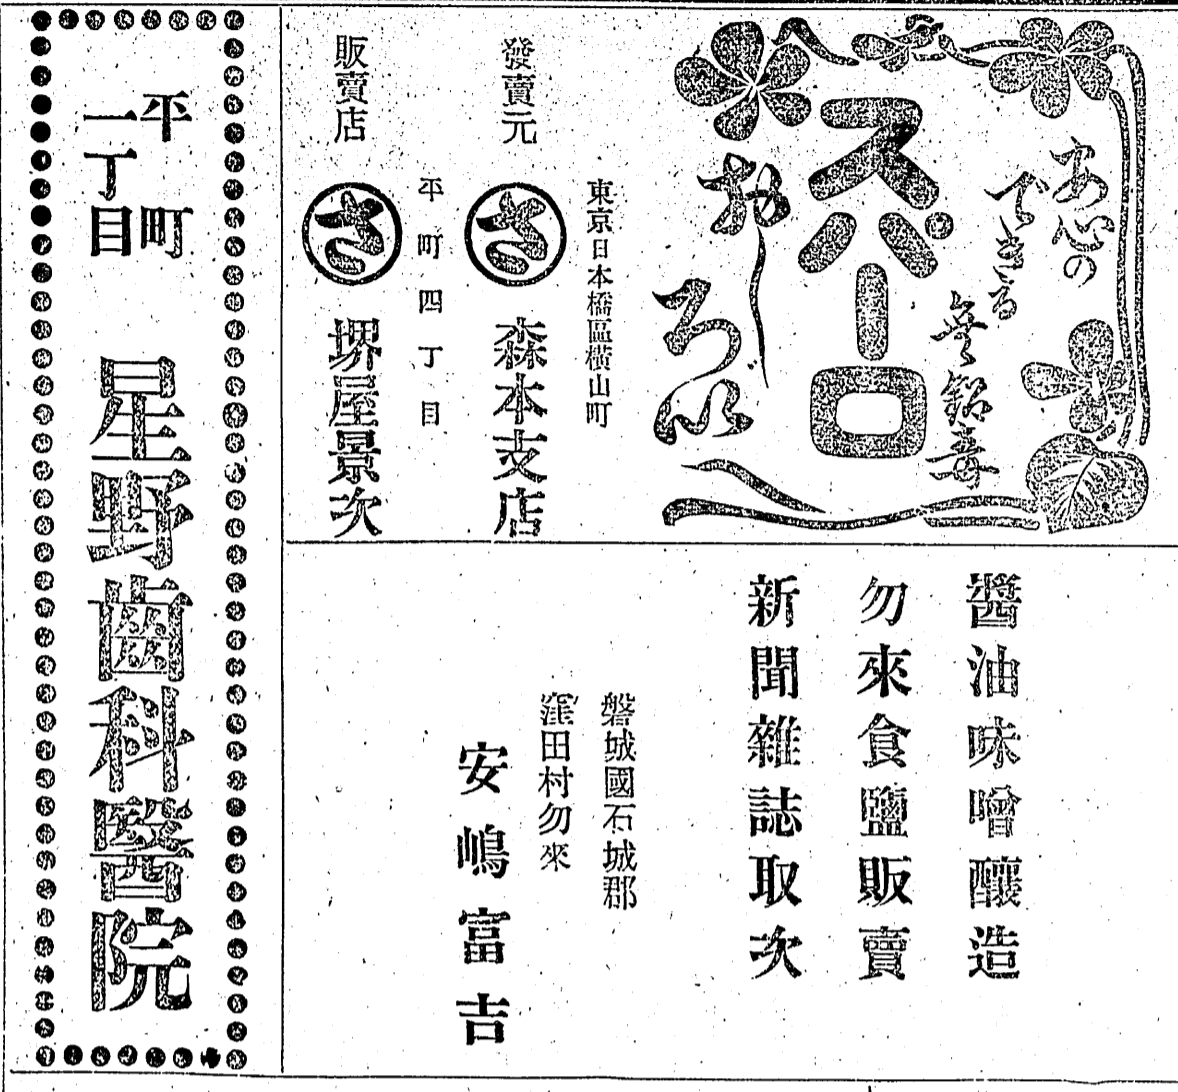 安心の
できる
無鉛毒
スパーロ
おしろい
東京日本橋區横山町
發賣元
さ
森本支店
平町四丁目
販賣店
さ
堺屋景次
醬油味噌釀造
勿來食鹽販賣
新聞雜誌取次
磐城國石城郡
窪田村勿來
安嶋富吉
平町
一丁目
星野齒科醫院